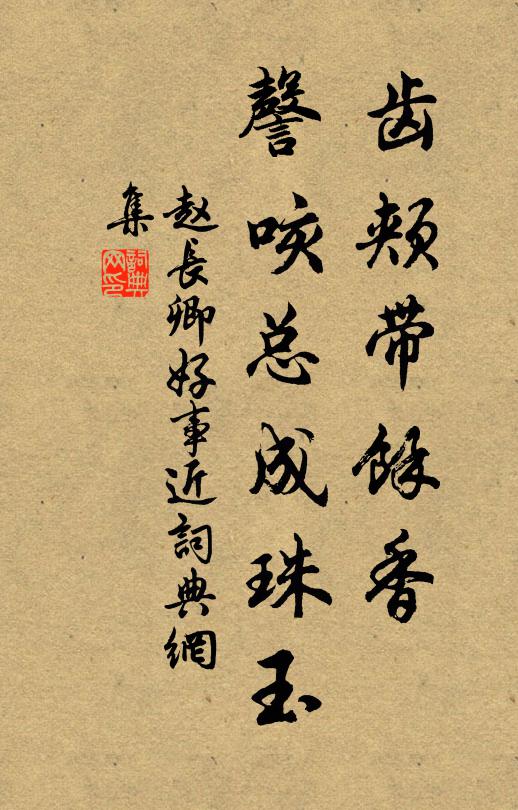 齿颊带馀香
謦咳总成珠玉
赵長卿好事近詞典網
集
詞典
网印